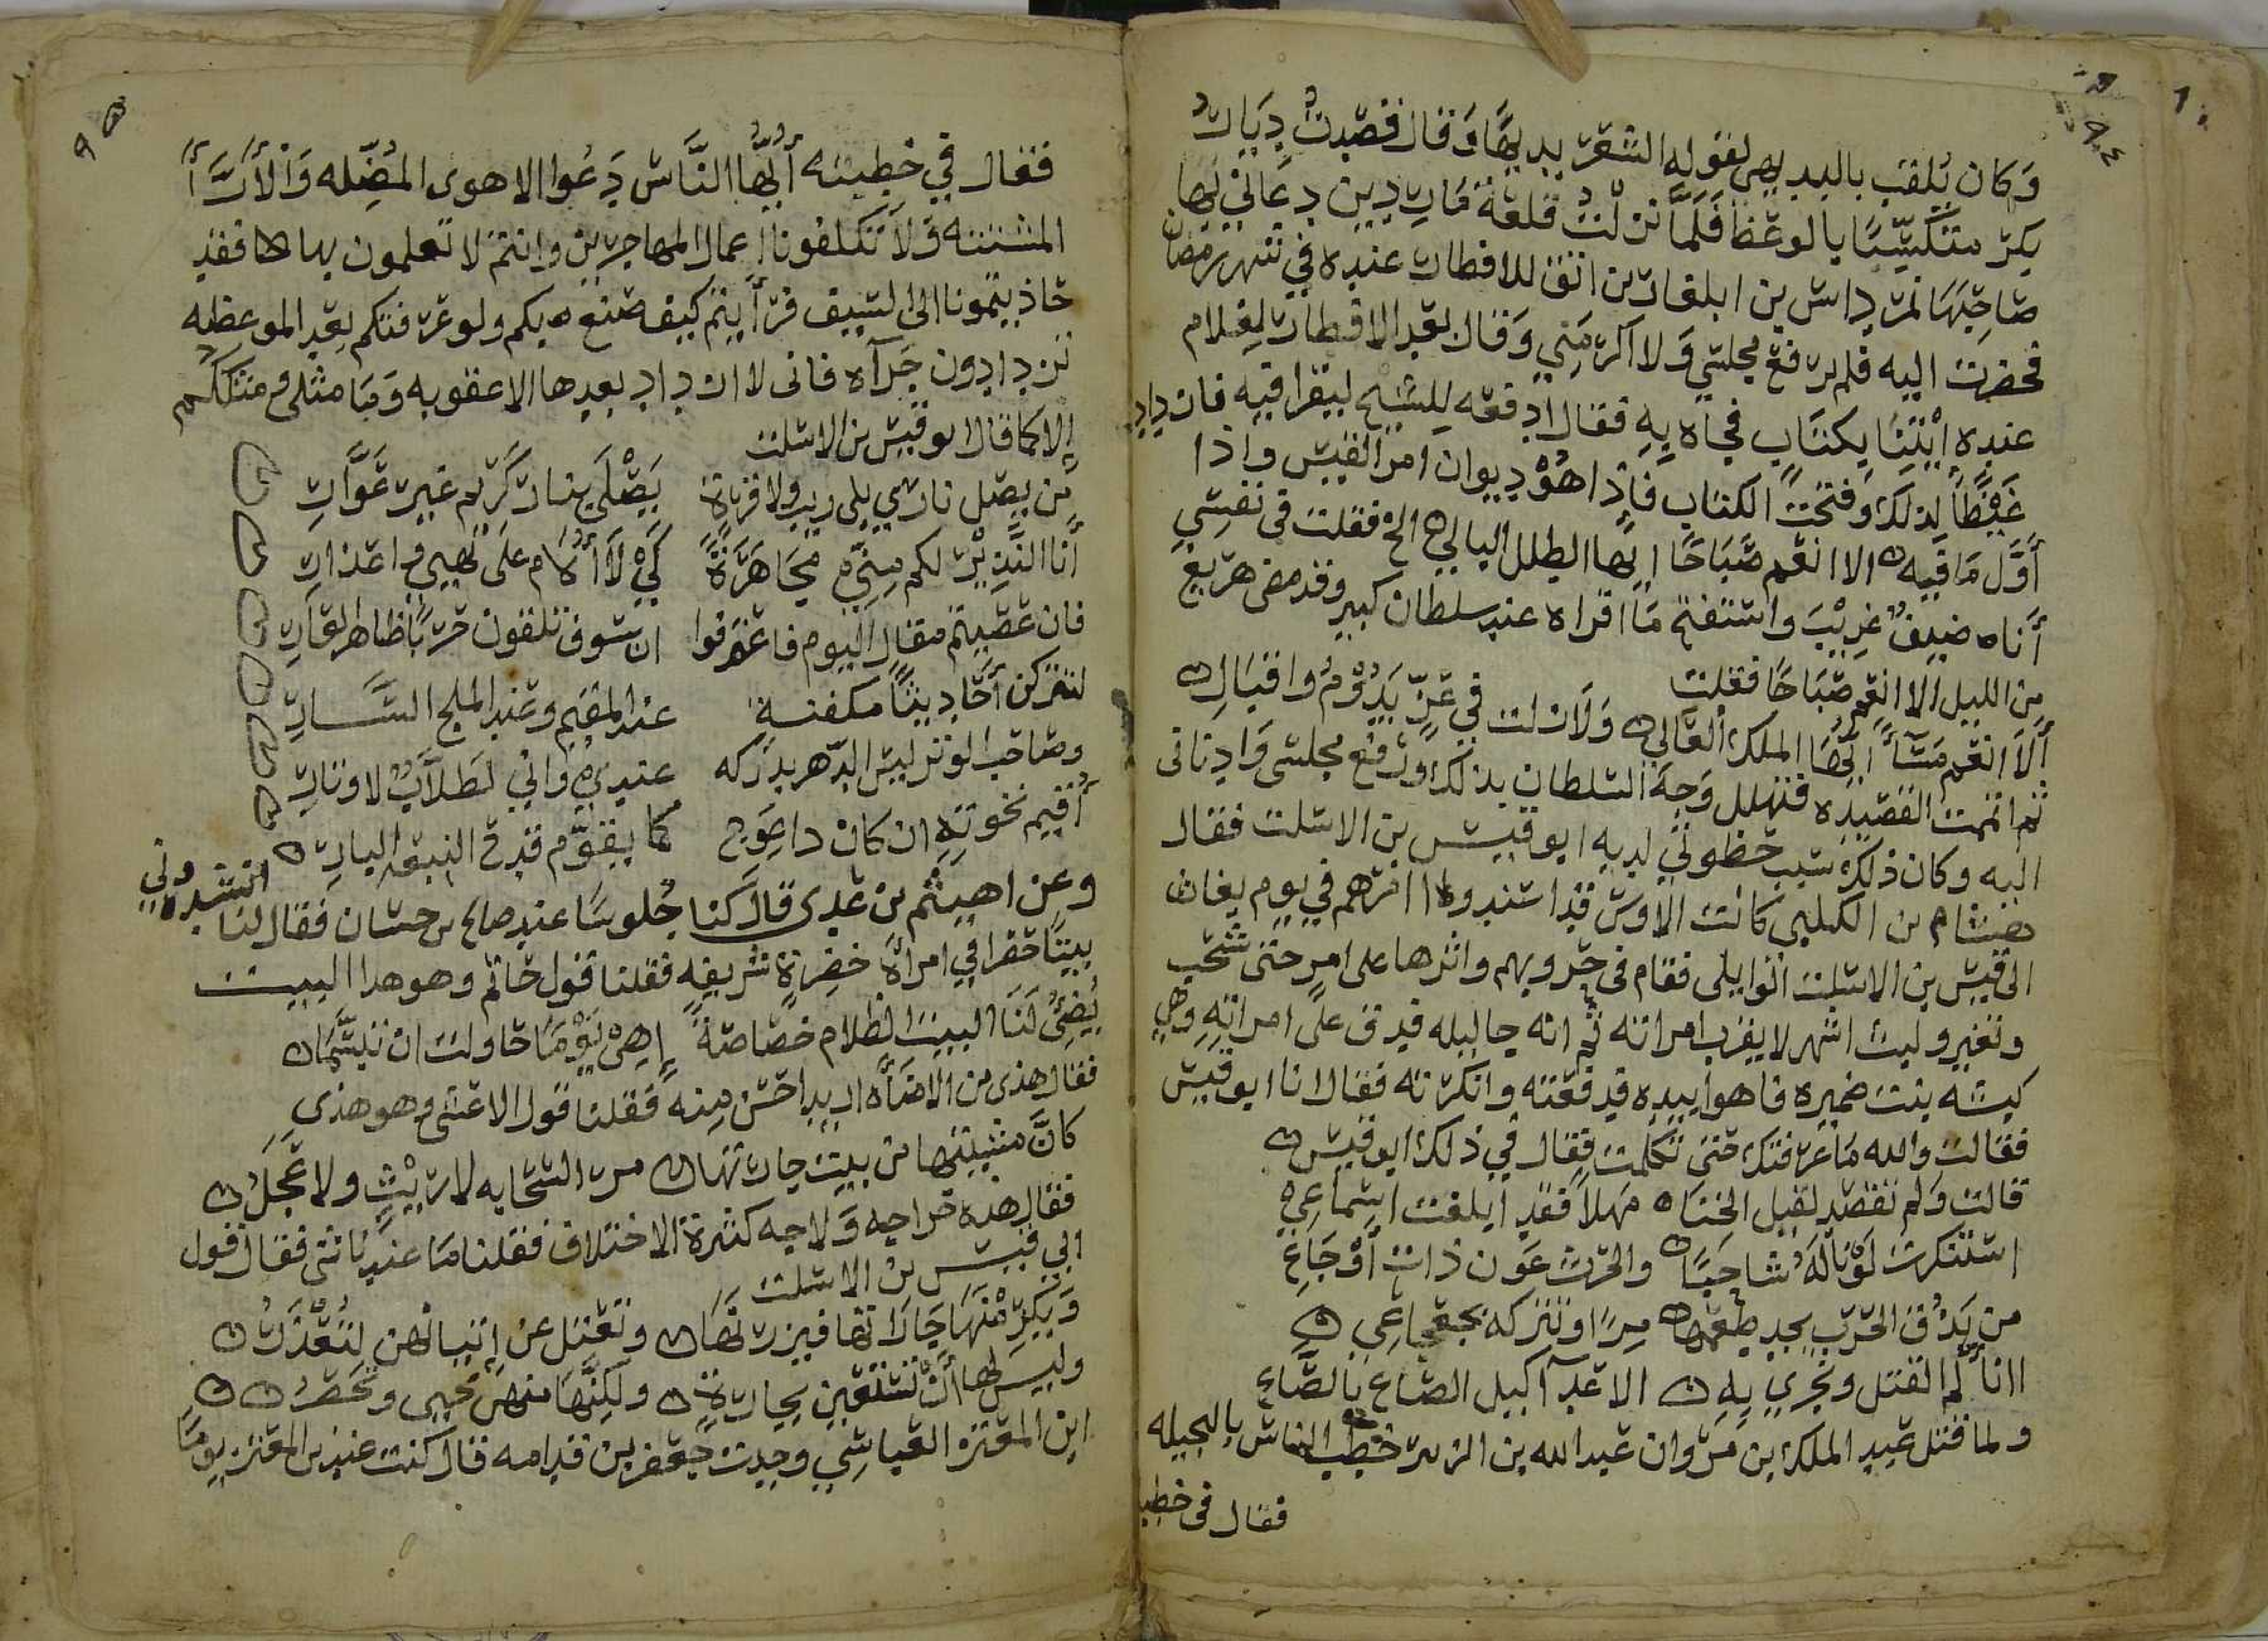 وَكان يُلقب بالبديهي لقوله الشعر بديهًا وَقال قصدت ديار
بكر متكسّبًا بالوعظ فلمّا نزلت قلعة ماردين دعاني لها
صاحبها تمرداش بن ابلغار بن اتق للافطار عنده في شهر رمضان
فحضرت اليه فلم يرفع مجلسي وَلا اكرمني وَقال بعد الافطار لغلام
عنده ائتنا بكتاب فجاه به فقال ادفعه للشيخ ليقرا فيه فازداد
غيظًا لذلك وَفتحت الكتاب فاذا هُوْ ديوان امر القيس واذا
أَوّل مَا فيه الا انعم صَبَاحًا ايها الطلل البالي الخ فقلت في نفسي
أناه ضيفٌ غريْب واستفتح مَا اقراه عند سلطان كبير وقد مضى هزيع
من الليل الا انعم صَبَاحًا فقلت
أَلاَ انعم مَسَآءً ايّهَا الملك العَالي وَلازلت في عزّ يدُوْمُ واقبَال
ثم اتممت القصيده فتهلل وَجه السلطان بذلك ورفع مجلسي وَادناني
اليه وكان ذلك سبب حظوتي لديه ابوقيس بن الاسلت فقال
هشام بن الكلبي كانت الاوس قد اسندوا امرهم في يوم بغاث
الى قيس بن الاسلت الوايلي فقام في حروبهم واثرها على امر حتى شحب
وتغير ولبث اشهر لا يقرب امراته ثم انه جا ليله فدق على امراتهِ وهي
كبشه بنت ضميره فاهوا بيده فدفعته وانكرته فقال انا ابوقيس
فقالت والله مَا عرفتك حتى تكلمت فقال في ذلك ابوقيس
قالت وَلم تقصد لقيل الخنا مَهلاً فقد ابلغت اسماعي
استنكرت لَوْنًا لهُ شاحبًا والحرب عون ذات أوْجَاعِ
من يَذُق الحَرب يجد طعمها مرًا وتتركه بجعجاعِ
الا نألم القتل ونجزي به الاعدآ كيل الصّاع بالصَّاعِ
ولما قتل عبد الملك بن مروان عبدالله بن الزبير خطب الناس بالجبله
فقال في خطب
فقال في خطبته أيُّها النَّاس دَعُوا الاهوى المُضِّله وَالأرَآَ
المشتته وَلاَ تكلفونا اعمال المهاجرين وانتم لا تعلمون بها فقد
جاذبتمونا الى السيف فرأَيتم كيف صنع بكم ولوعرفتكم بعد الموعظه
تزدادون جَرآه فاني لا ازداد بعدها الا عقوبه وَمَا مثلي ومثلكم
إلا كما قال ابوقيس بن الاسلت
من يصل ناري بلي ريب ولا فرة يَصْلَى بنار كريم غير غوّارِ
أنا النَّذِيْرُ لكم منّي مجاهَرَةً كَيْ لاَ أُلاَم على نهيي واعذارِ
فان عصيتم مقال اليوم فاعترفوا ان سوف تلقون حربًا ظاهر العَارِ
لتتركن أحَاديثًا مكفنةٍ عند المقيم وعند المدلج السَّارِ
وصاحب الوتر ليس الدّهر يدركه عندي وانّي لطَلاَّبٌ لاوتارِ
أُقيم نخوتهِ ان كان ذا عوج كما يقوّم قدح النبعه البارِ
وعن اهيثم بن عدى قال كنا جُلوسًا عند صالح بن حسان فقال لنا انشدوني
بيتًا خفرا في امرأة خَفِرة شريفه فقلنا قول حاتم وهو هذا البيت
يُضيُ لنا البيت الظلام خصَاصةً إذ هِيَ يَوْمًا حاولت ان تبسَّمَا
فقال هذى من الامَآء اريد احسن منه فقلنا قول الاعشى وهو هذي
كانّ مشيتها من بيت جارتها مر السّحابه لا ريْث ولا عجَلُ
فقال هذه خراجه وَلاجه كثرة الاختلاف فقلنا مَا عندنا شى فقال قول
ابي قيس بن الاسلت
وَيكرمْنهَا جَاراتها فيزرنهَا وتعتل عن إتيانهن لتُعْذَرُ
وليس لها أن تستعين بجارةٍ ولكنّهَا منهن تحيى وتحصرُ
ابن المعتزه العباسي وجدت جعفر بن قدامه قال كنت عند بن المعتز يومًا